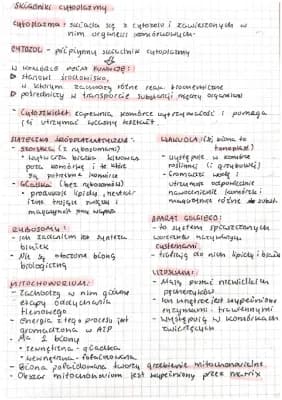 Składniki cytoplazmy
Cytoplazma: składa się z cytozolu i zawieszonych w
nim organelli komórkowych.
CYTOZOL - półpłynny składnik cytoplazmy
w komórce pełni funkcję:
stanowi środowisko,
w którym zachodzą różne reakcje biochemiczne
pośredniczy w transporcie substancji między organellami
Cytoszkielet zapewnia komórce wytrzymałość i pomaga
jej utrzymać własny kształt.
SIATECZKA ŚRÓDPLAZMATYCZNA:
- szorstka (z rybosomami)
wytwarza białka, kierowane
poza komórkę i te które
są potrzebne komórce
- gładka (bez rybosomów)
produkuje lipidy, neutrali-
zuje trujące związki i
magazynuje jony wapnia
WAKUOLA (jej błona to
tonoplast)
występuje w komórce
roślinnej (i grzybowej)
Gromadzi wodę i
utrzymuje odpowiednie
nawodnienie komórki
magazynuje różne substancje
RYBOSOMY:
Ich zadaniem jest synteza
białek
Nie są otoczone błoną
biologiczną
APARAT GOLGIEGO:
- to system spłaszczonych
woreczków nazywanych
cysternami.
- trafiają do nich lipidy i białka
MITOCHONDRIUM:
- Zachodzą w nim główne
etapy oddychania
tlenowego
- energia z tego procesu jest
gromadzona w ATP
- Ma 2 błony
zewnętrzna - gładka
wewnętrzna - pofałdowana
- Błona pofałdowana tworzy grzebienie mitochondrialne
- Obszar mitochondrium jest wypełniony przez matrix
LIZOSOMY:
Mają postać niewielkich
pęcherzyków
Ich wnętrze jest wypełnione
enzymami trawiennymi
występują w komórkach
zwierzęcych